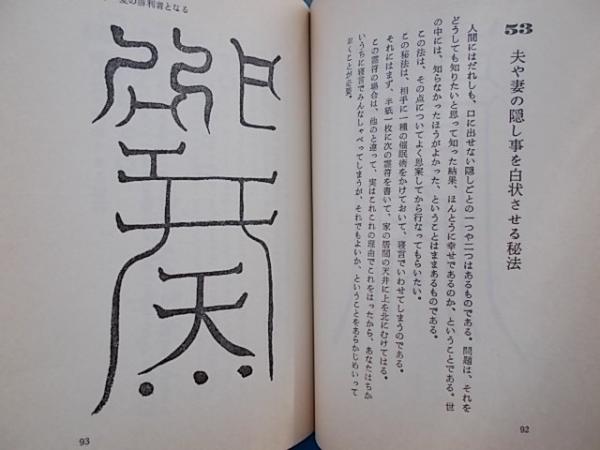 53 夫や妻の隠し事を白状させる秘法
人間にはだれしも、口に出せない隠しごとの一つや二つはあるものである。問題は、それを
どうしても知りたいと思って知った結果、ほんとうに幸せであるのか、ということである。世
の中には、知らなかったほうがよかった、ということはままあるものである。
この法は、その点についてよく思案してから行なってもらいたい。
この秘法は、相手に一種の催眠術をかけておいて、寝言でいわせてしまうのである。
それにはまず、半紙一枚に次の霊符を書いて、家の居間の天井に上を北にむけてはる。
この霊符の場合は、他のと違って、実はこれこれの理由でこれをはったから、あなたはちか
いうちに寝言でみんなしゃべってしまうが、それでもよいか、ということをあらかじめいって
おくことが必要。
92
愛の勝利者となる
天
93